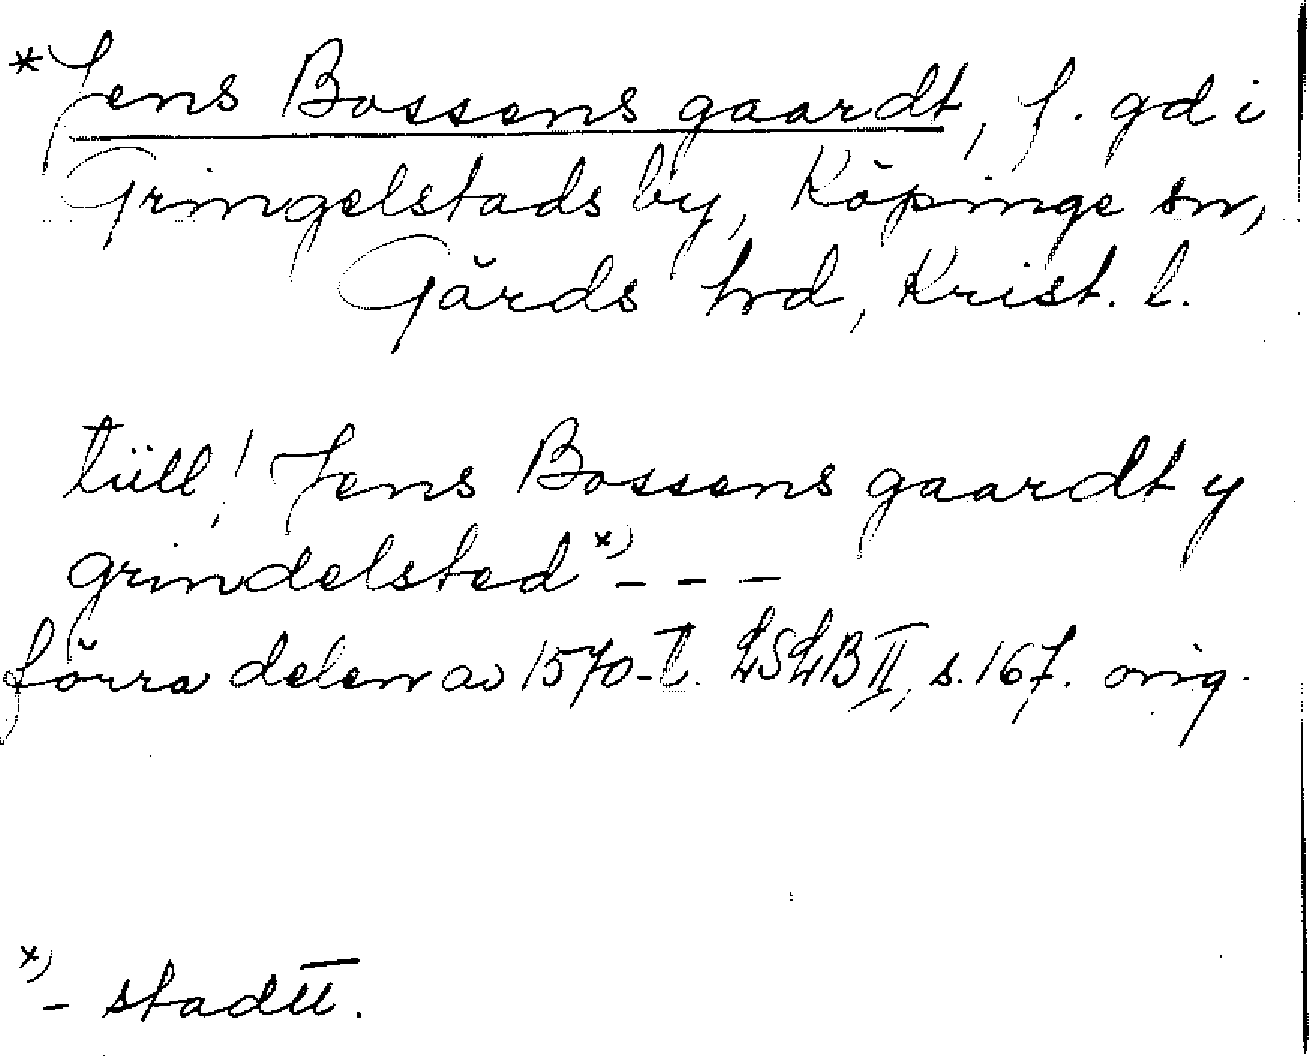 *Jens Bossens gaardt, f. gd i
Gringelstads by, Köpinge sn,
Gärds hrd, Krist. l.
tüll! Jens Bossens gaardt y
grindelsted *) - - -
förra delen av 1570-t. LSLB II, s. 167. orig.
*) - stadtt.